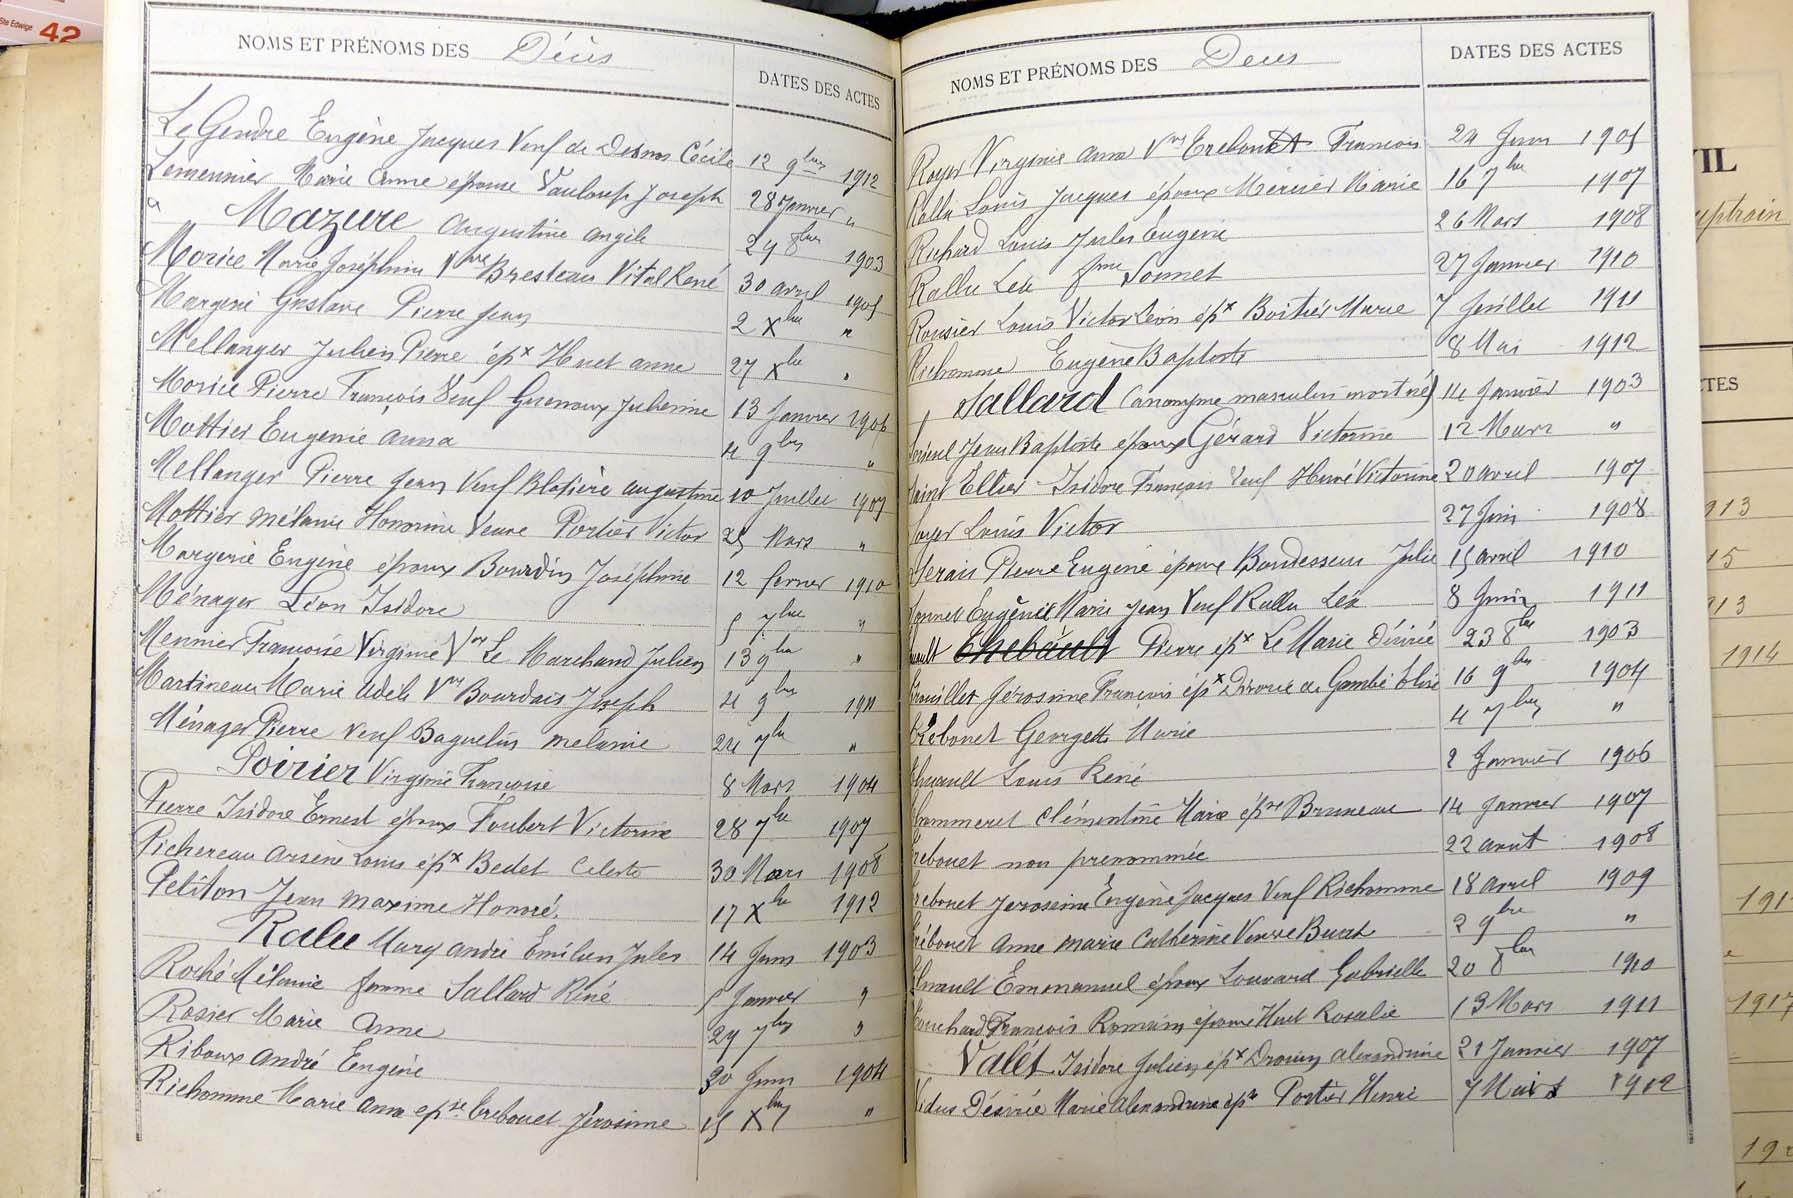 Ste Edwige 42
NOMS ET PRÉNOMS DES Décès
DATES DES ACTES
Le Gendre Eugène Jacques Veuf de Desnos Cécile 12 9bre 1912
Lemeunier Marie Anne épouse Vauloup Joseph 28 Janvier "
" Mazure Augustine Angèle 29 8bre 1903
Morice Marie Joséphine Vve Bresteau Vital René 30 avril 1905
Margerie Gustave Pierre Jean 2 Xbre "
Mellanger Julien Pierre épx Huet anne 27 Xbre "
Morice Pierre François Veuf Guenoux Julienne 13 Janvier 1906
Mottier Eugénie Anna 4 9bre "
Mellanger Pierre Jean Veuf Blotière augustine 10 Juillet 1907
Mottier mélanie Honorine Veuve Portier Victor 25 Mars "
Margerie Eugène époux Bourdin Joséphine 12 fevrier 1910
Ménager Léon Isidore 5 7bre "
Meunier Françoise Virginie Vve Le Marchand Julien 13 9bre "
Martineau Marie Adèle Vve Bourdais Joseph 4 9bre 1911
Ménager Pierre Veuf Baguelin melanie 24 7bre "
Poirier Virginie Françoise 8 Mars 1904
Pierre Isidore Ernest époux Foubert Victorine 28 7bre 1907
Pichereau Arsène Louis épx Bedet Celeste 30 Mars 1908
Petiton Jean Maxime Honoré. 17 Xbre 1912
Ralu Mary andré Emilien Jules 14 Juin 1903
Roché Mélanie femme Sallard René 5 Janvier "
Rosier Marie Anne 29 7bre "
Riboux André Eugène 30 Juin 1904
Richomme Marie Anna épse Trebouet Jérosime 15 Xbre "
NOMS ET PRÉNOMS DES Deces
DATES DES ACTES
Royer Virginie Anna Vve Trebouet François 24 Juin 1905
Rallu Louis Jacques époux Mercier Marie 16 7bre 1907
Richard Louis Jules Eugène 26 Mars 1908
Rallu Léa fme Sonnet 27 Janvier 1910
Rousier Louis Victor Léon épx Boitier Marie 7 Juillet 1911
Richomme Eugène Baptiste 8 Mai 1912
Sallard (anonyme masculin mort né) 14 Janvier 1903
Jean Baptiste époux Gérard Victorine 12 Mars "
Saint Ellier Isidore François Veuf Huré Victorine 20 avril 1907
Soyer Louis Victor 27 Juin 1908
Serais Pierre Eugène époux Baudesseau Julie 15 avril 1910
Sonnet Eugène Marie Jean Veuf Rallu Léa 8 Juin 1911
Thebault Pierre épx Le Marie Désirée 23 8bre 1903
Trouillet Jerosime François épx Divorcé de Gambé Elise 16 9bre 1904
Trébouet Georgette Marie 4 7bre "
Thuault Louis René 2 Janvier 1906
Clémentine Marie épse Bruneau 14 Janvier 1907
Trebouet non prenommée 22 août 1908
Trebouet Jerosime Eugène Jacques Veuf Richomme 18 avril 1909
Trébouet Anne Marie Catherine Veuve Buat 2 9bre "
Thuault Emmanuel époux Louvard Gabrielle 20 8bre 1910
Touchard François Romain époux Huet Rosalie 13 Mars 1911
Valét Isidore Julien épx Drouin Alexandrine 21 Janvier 1907
Vidus Désirée Marie Alexandrine épse Portier Henri 7 Mai 1912
VIL
TES
913
15
913
1914
191
1917
19